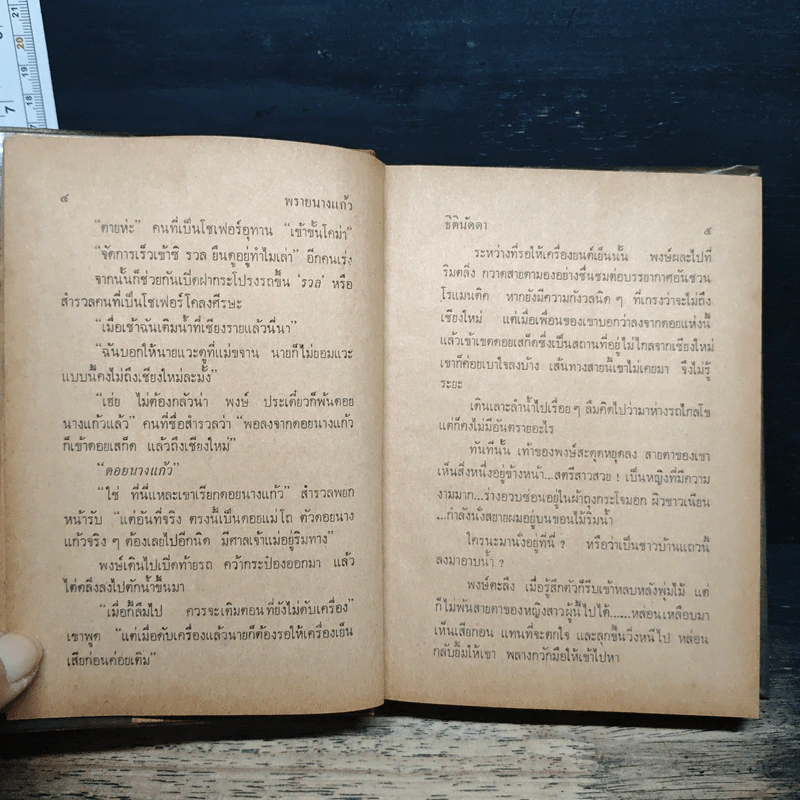 ๔ พรายนางแก้ว
"ตายห่ะ" คนที่เป็นโชเฟอร์อุทาน "เข้าขั้นโคม่า"
"จัดการเร็วเข้าซิ รวล ยืนดูอยู่ทำไมเล่า" อีกคนเร่ง
จากนั้นก็ช่วยกันเปิดฝากระโปรงรถขึ้น 'รวล' หรือ
สำรวลคนที่เป็นโชเฟอร์โคลงศีรษะ
"เมื่อเช้าฉันเติมน้ำที่เชียงรายแล้วนี่นา"
"ฉันบอกให้นายแวะดูที่แม่ขจาน นายก็ไม่ยอมแวะ
แบบนี้คงไม่ถึงเชียงใหม่ละมั้ง"
"เฮ่ย ไม่ต้องกลัวน่า พงษ์ ประเดี๋ยวก็พ้นดอย
นางแก้วแล้ว" คนที่ชื่อสำรวลว่า "พอลงจากดอยนางแก้ว
ก็เข้าดอยเสก็ด แล้วถึงเชียงใหม่"
"ดอยนางแก้ว"
"ใช่ ที่นี่แหละเขาเรียกดอยนางแก้ว" สำรวลพยก
หน้ารับ "แต่อันที่จริง ตรงนี้เป็นดอยแม่โถ ตัวดอยนาง
แก้วจริง ๆ ต้องเลยไปอีกนิด มีศาลเจ้าแม่อยู่ริมทาง"
พงษ์เดินไปเปิดท้ายรถ คว้ากระป๋องออกมา แล้ว
ไต่ตลิ่งลงไปตักน้ำขึ้นมา
"เมื่อกี้ลืมไป ควรจะเติมตอนที่ยังไม่ดับเครื่อง"
เขาพูด "แต่เมื่อดับเครื่องแล้วนายก็ต้องรอให้เครื่องเย็น
เสียก่อนค่อยเติม"
ธิตินัดดา ๕
ระหว่างที่รอให้เครื่องยนต์เย็นนั้น พงษ์ผละไปที่
ริมตลิ่ง กวาดสายตามองอย่างชื่นชมต่อบรรยากาศอันชวน
โรแมนติค หากยังมีความกังวลนิด ๆ ที่เกรงว่าจะไม่ถึง
เชียงใหม่ แต่เมื่อเพื่อนของเขาบอกว่าลงจากดอยแห่งนี้
แล้วเข้าเขตดอยเสก็ดซึ่งเป็นสถานที่อยู่ไม่ไกลจากเชียงใหม่
เขาก็ค่อยเบาใจลงบ้าง เส้นทางสายนี้เขาไม่เคยมา จึงไม่รู้
ระยะ
เดินเลาะลำน้ำไปเรื่อยๆ ลืมคิดไปว่ามาห่างรถไกลโข
แต่ก็คงไม่มีอันตรายอะไร
ทันทีนั้น เท้าของพงษ์สะดุดหยุดลง สายตาของเขา
เห็นสิ่งหนึ่งอยู่ข้างหน้า...สตรีสาวสวย ! เป็นหญิงที่มีความ
งามมาก...ร่างอวบซ่อนอยู่ในผ้าถุงกระโจมอก ผิวขาวเนียน
...กำลังนั่งสยายผมอยู่บนขอนไม้ริมน้ำ
ใครนะมานั่งอยู่ที่นี่ ? หรือว่าเป็นชาวบ้านแถวนี้
ลงมาอาบน้ำ ?
พงษ์ตะลึง เมื่อรู้สึกตัวก็รีบเข้าหลบหลังพุ่มไม้ แต่
ก็ไม่พ้นสายตาของหญิงสาวผู้นี้ไปได้......หล่อนเหลือบมา
เห็นเสียก่อน แทนที่จะตกใจ และลุกขึ้นวิ่งหนีไป หล่อน
กลับยิ้มให้เขา พลางกวักมือให้เข้าไปหา